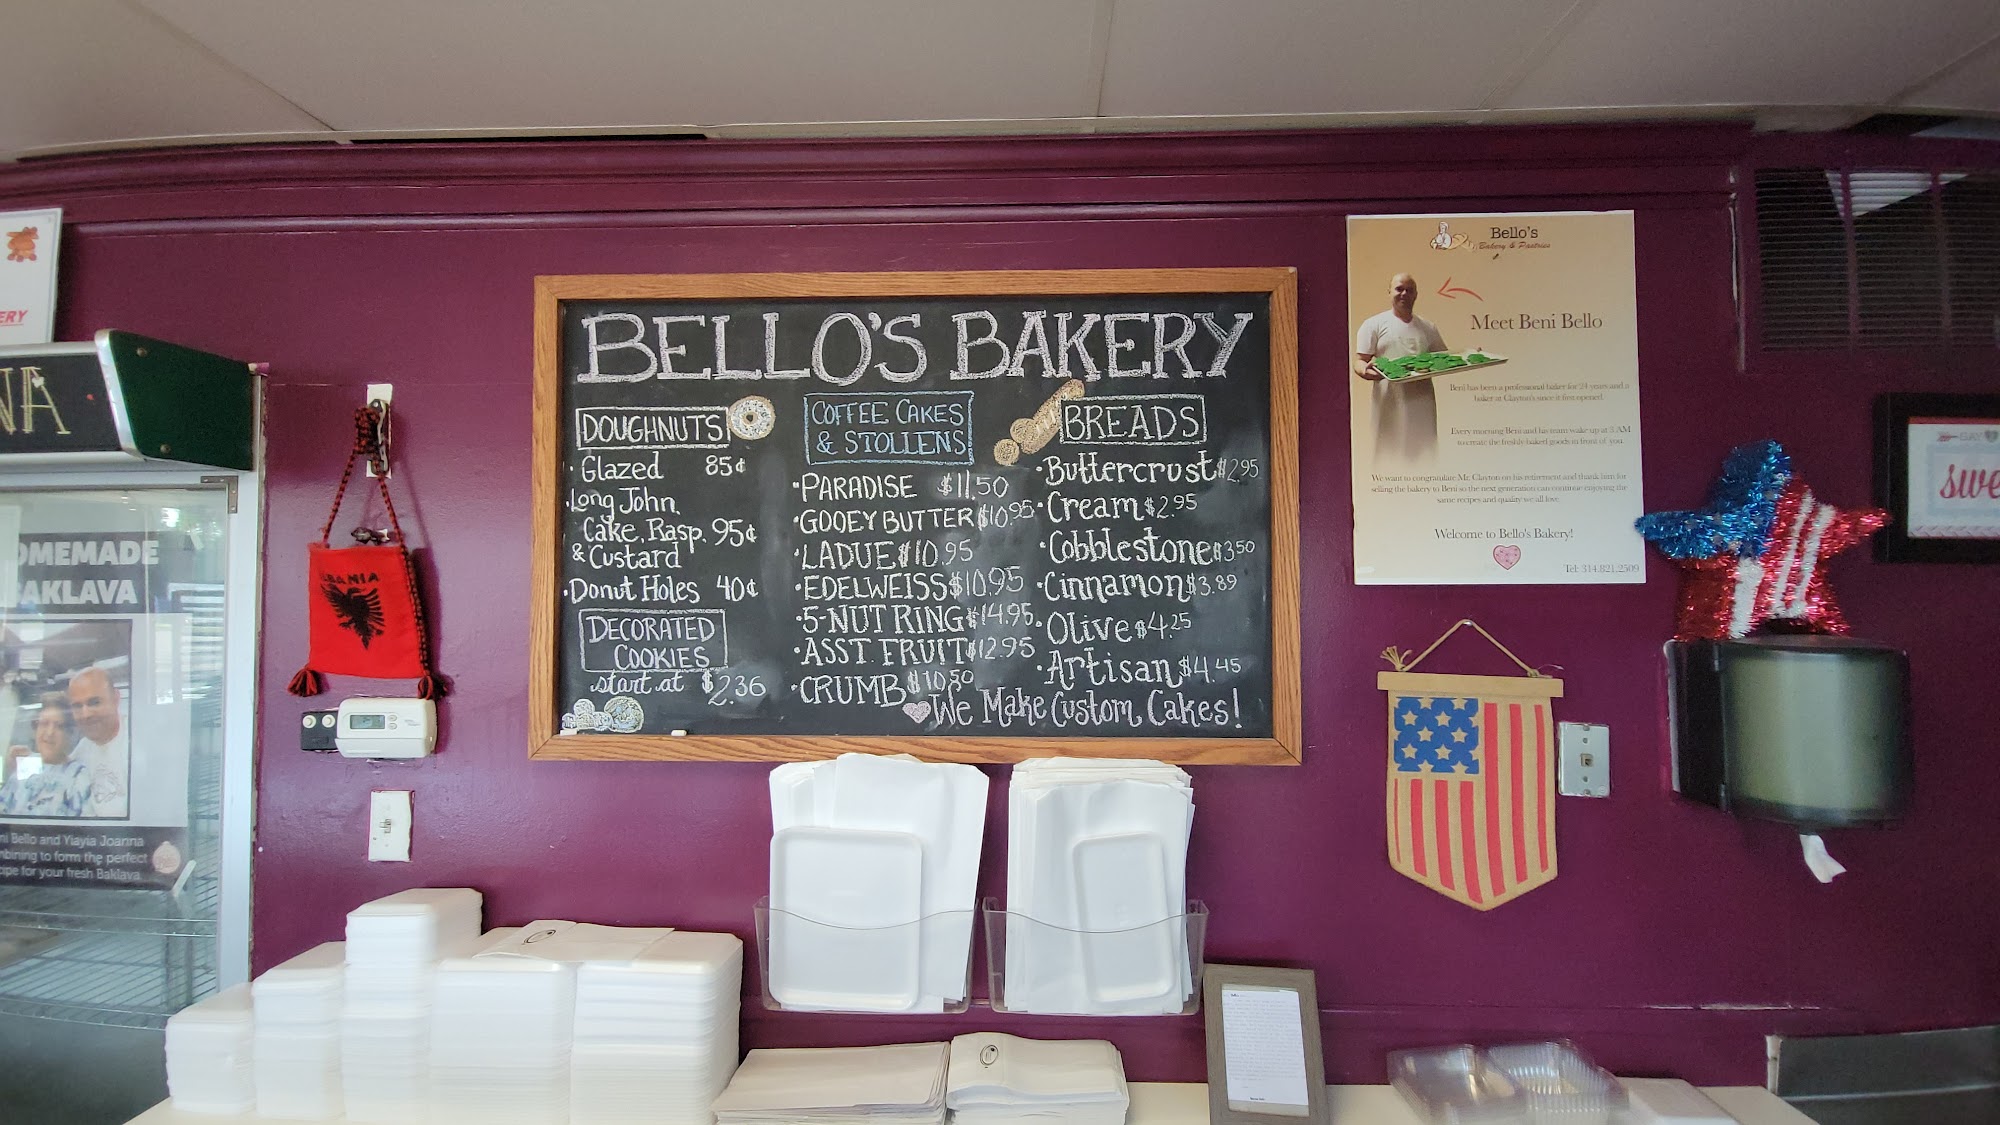 ERY
NA
OMEMADE
AKLAVA
ni Bello and Yiayia Joanna
mbining to form the perfect
cipe for your fresh Baklava
BANIA
BELLO'S BAKERY
DOUGHNUTS
• Glazed 85¢
• Long John,
Cake, Rasp. 95¢
& Custard
• Donut Holes 40¢
DECORATED
COOKIES
start at $2.36
COFFEE CAKES
& STOLLENS
• PARADISE $11.50
• GOOEY BUTTER $10.95
• LADUE $10.95
• EDELWEISS $10.95
• 5-NUT RING $14.95
• ASST. FRUIT $12.95
• CRUMB $10.50
BREADS
• Buttercrust $2.95
• Cream $2.95
• Cobblestone $3.50
• Cinnamon $3.89
• Olive $4.25
• Artisan $4.45
We Make Custom Cakes!
Bello's
Bakery & Pastries
Meet Beni Bello
Beni has been a professional baker for 24 years and a
baker at Clayton's since it first opened.
Every morning Beni and his team wake up at 3 AM
to create the freshly baked goods in front of you.
We want to congratulate Mr. Clayton on his retirement and thank him for
selling the bakery to Beni so the next generation can continue enjoying the
same recipes and quality we all love.
Welcome to Bello's Bakery!
Tel: 314.821.2509
swe